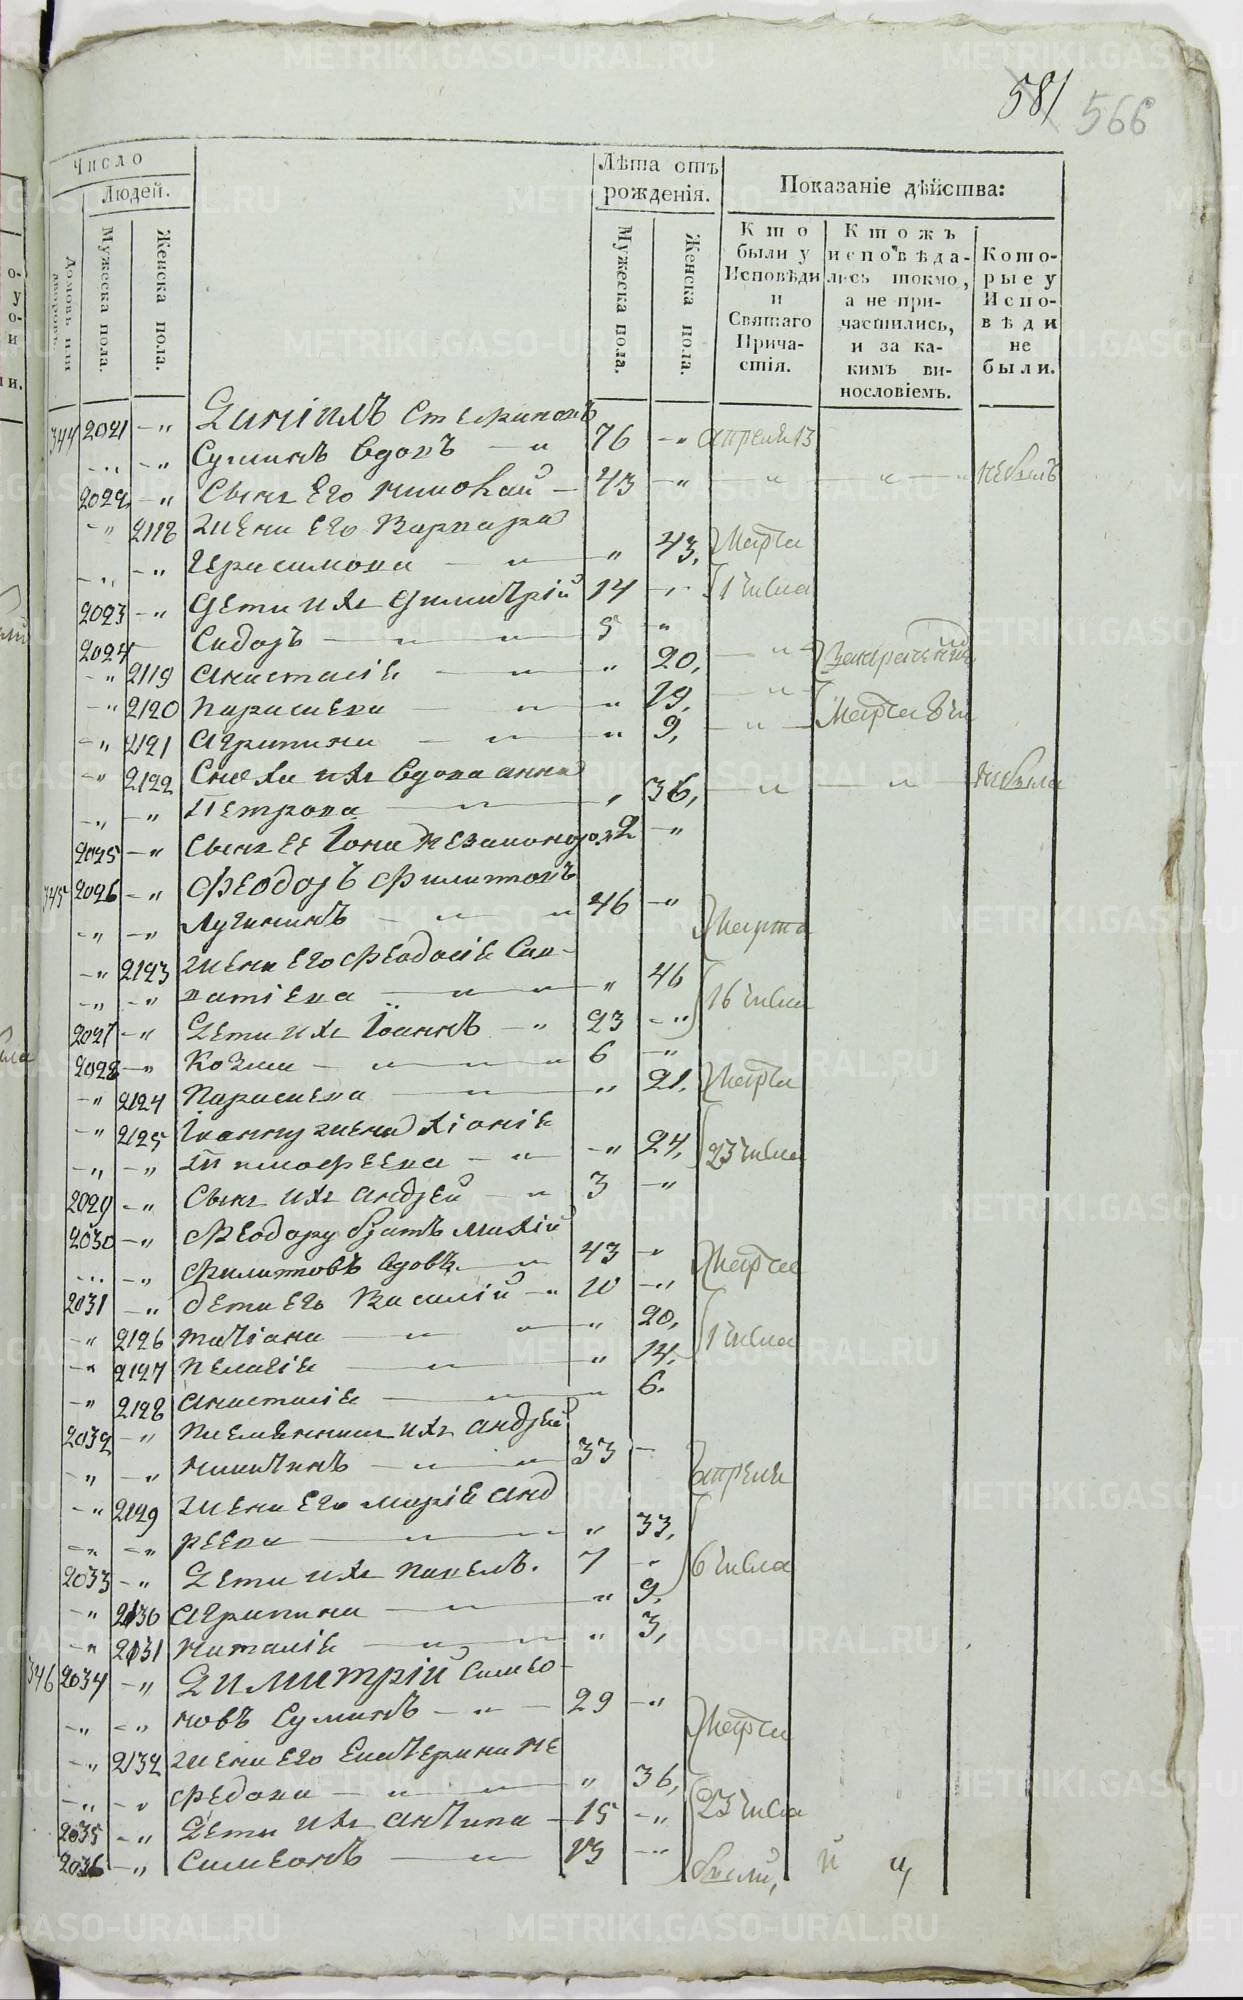 581 566
Число
Людей.
Домовъ или дворовъ.
Мужеска пола.
Женска пола.
Лѣта отъ рожденія.
Мужеска пола.
Женска пола.
Показаніе дѣйства:
Кто были у Исповѣди и Святаго Причастія.
Ктожъ исповѣдались токмо, а не причастились, и за какимъ винословіемъ.
Которые у Исповѣди не были.
344 2021 —„ Даніилъ Стефановъ
—„ —„ Суминъ вдовъ —„ 76 —„ апреля 13
2022 —„ Сынъ Его Николай — 43 —„ —„— —„— небылъ
—„ 2118 Жена Его Варвара
—„ —„ Герасимова —„— „ 43, Марта
2023 —„ Дети ихъ Димитрій 14 —„ 1 числа
2024 — Сидоръ —„—„ 5 „
—„ 2119 Анастасія —„—„ „ 20, —„—
—„ 2120 Параскева —„ „ 19, —„— Марта 8 чи
—„ 2121 Агрипина —„ „ 9, —„—
—„ 2122 Сноха ихъ вдова Анна
—„ —„ Петрова —„— „ 36, —„— —„— небыла
2025 —„ Сынъ ее Іона 2 —„
345 2026 —„ Феодоръ Филиповъ
—„ —„ Лучининъ —„—„ 46 —„ Марта
—„ 2123 Жена Его Феодосія Сав-
—„ —„ ватіева —„—„ „ 46 16 числа
2027 —„ Дети ихъ Іоаннъ —„ 23 —„
2028 —„ Козма —„—„ 6 —„
—„ 2124 Параскева —„— „ 21. Марта
—„ 2125 Іоанну жена Хіонія
—„ —„ Тимофеева —„— —„ 24, 23 числа
2029 —„ Сынъ ихъ Андрей —„ 3 —„
2030 —„ Феодору братъ Михій
—„ —„ Филиповъ вдовъ —„ 43 —„ Марта
2031 —„ Дети Его Василій —„ 10 —„
—„ 2126 Татіана —„—„ „ 20, 1 числа
—„ 2127 Пелагія —„— „ 14,
—„ 2128 Анастасія —„—„ 6.
2032 —„ Племянникъ ихъ Андрей
—„ —„ Никитинъ —„—„ 33 — апреля
—„ 2129 Жена Его Марія Анд
—„ —„ реева —„—„ „ 33,
2033 —„ Дети ихъ Павелъ. 7 „ 6 числа
—„ 2130 Агрипина —„— „ 9,
—„ 2131 Наталія —„—„ „ 3,
346 2034 —„ Димитрій Симео-
—„ —„ новъ Суминъ —„— 29 —„ Марта
—„ 2132 Жена Его Екатерина Не
—„ —„ федова —„—„ „ 36,
2035 —„ Дети ихъ Антипа — 15 —„ 23 числа
2036 —„ Симеонъ —„ 13 —„
были, и и,
METRIKI.GASO-URAL.RU